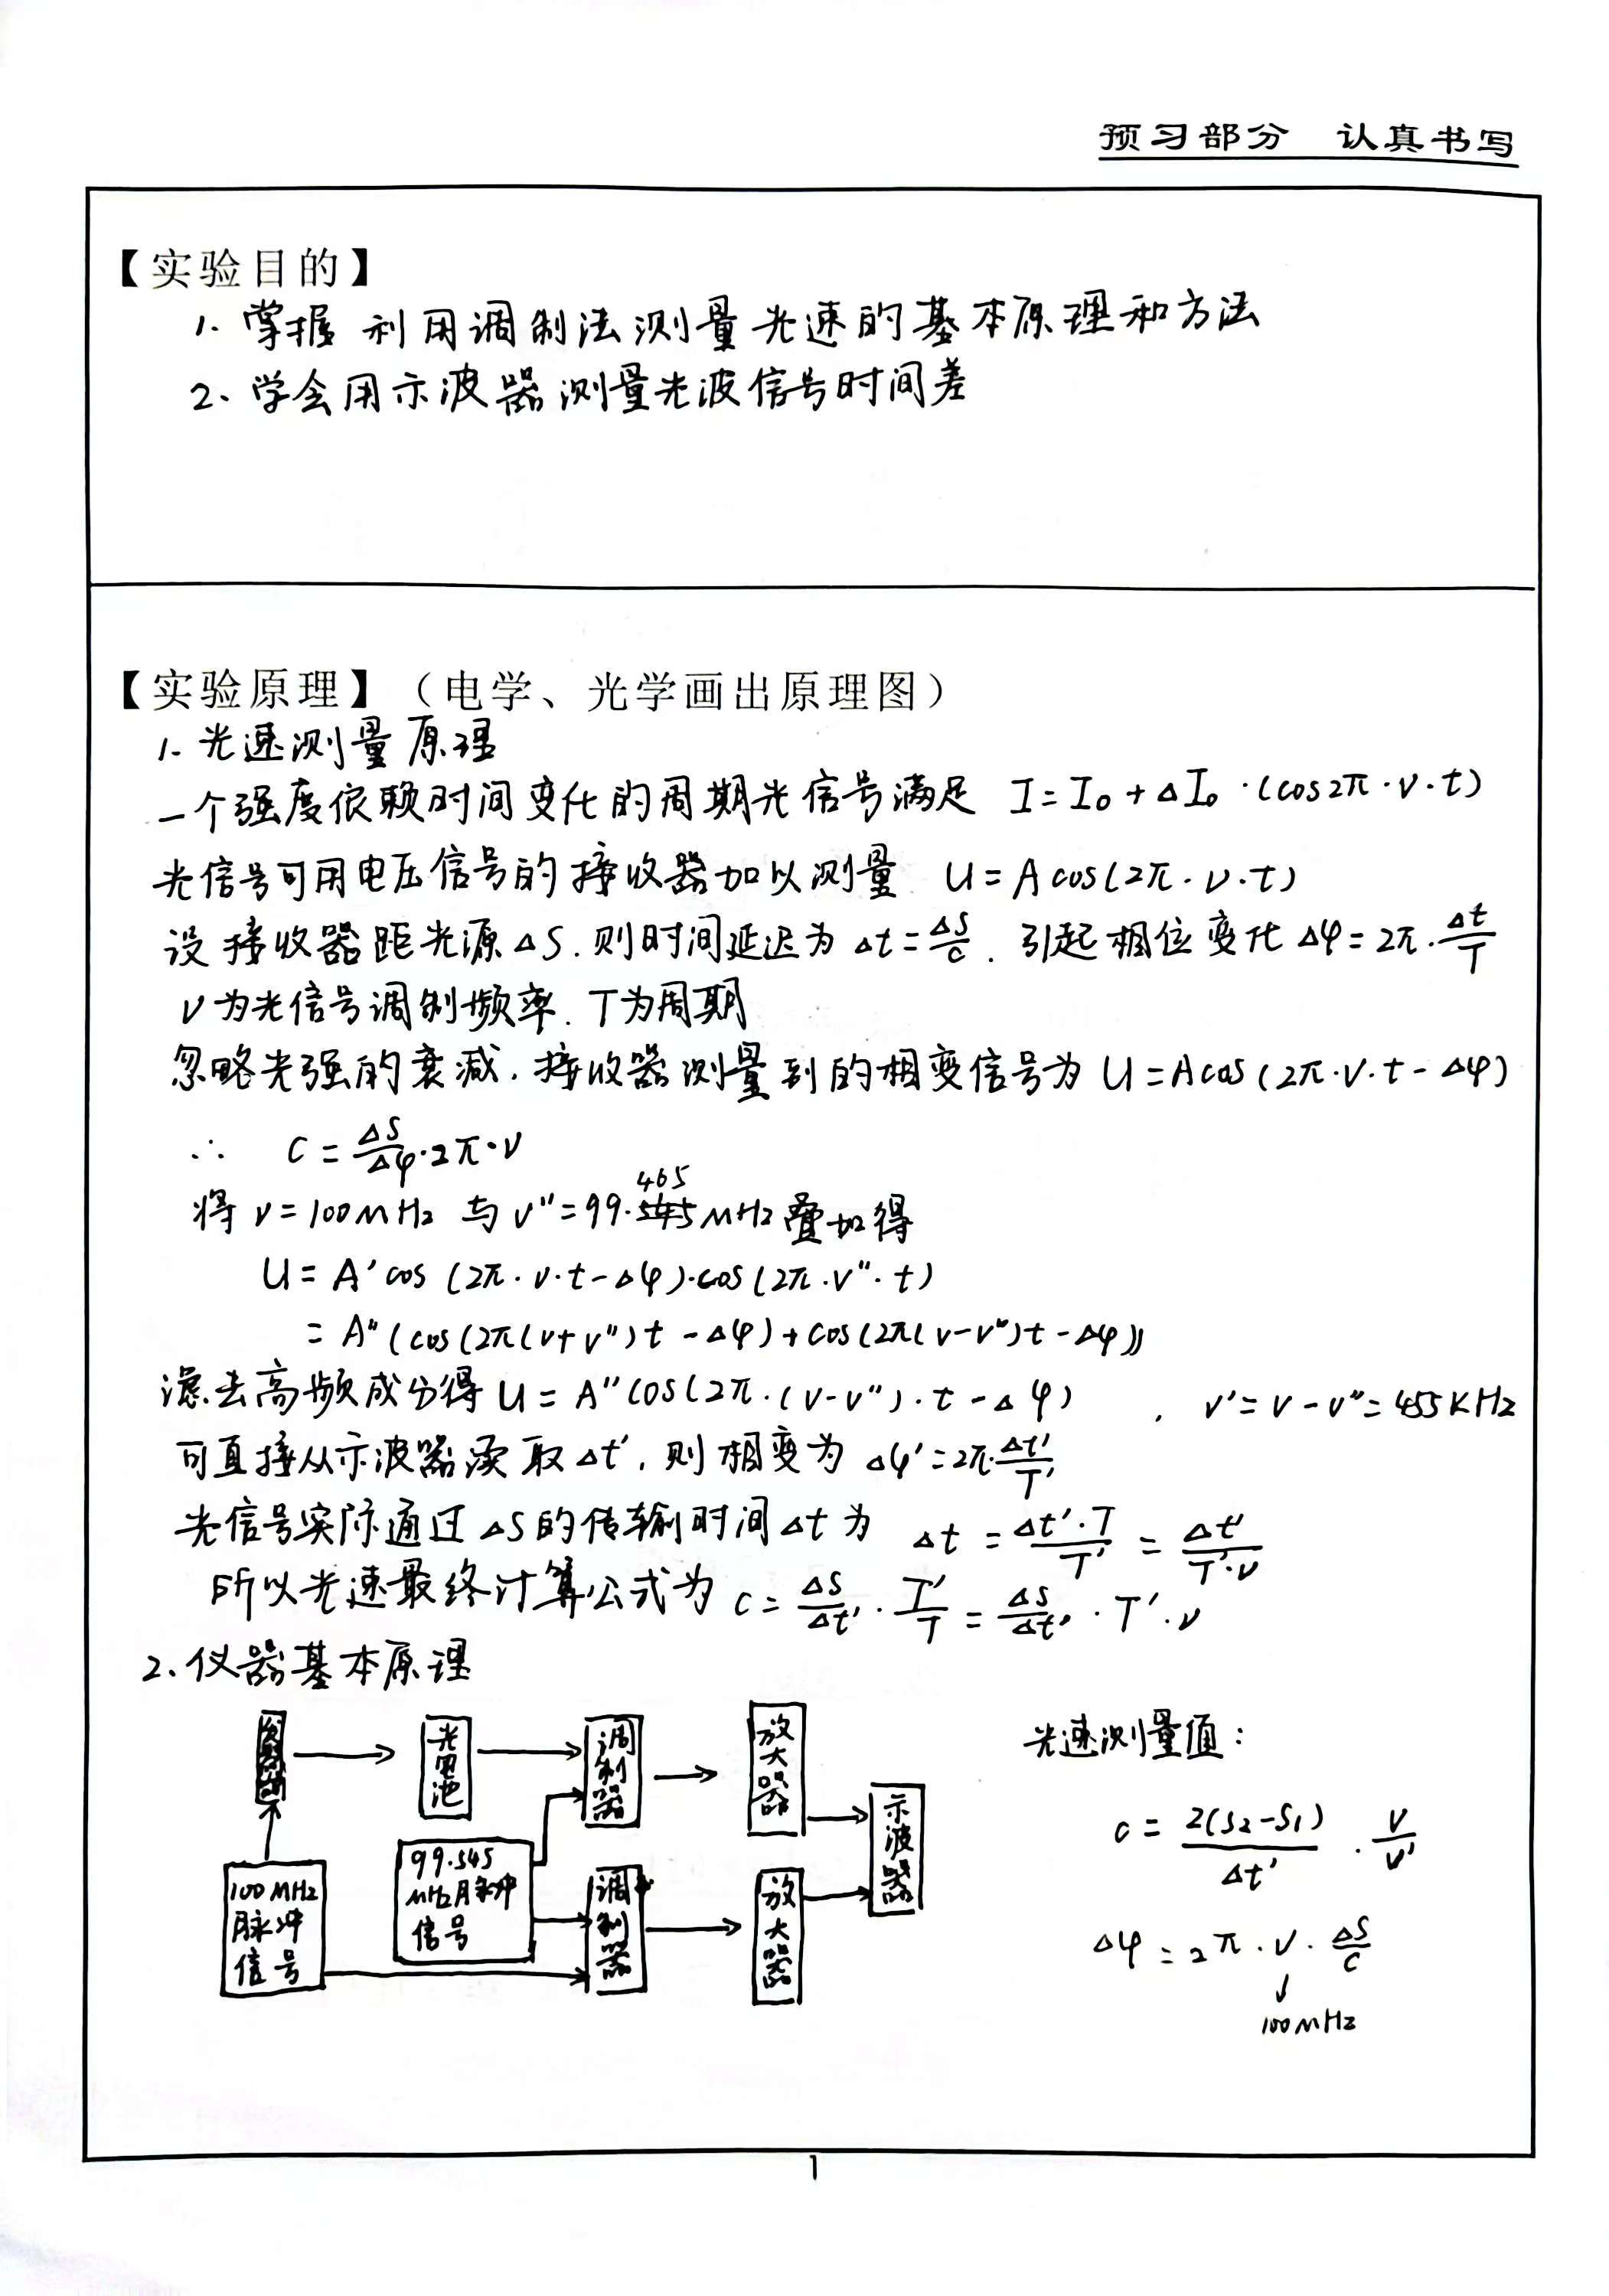 预习部分 认真书写
【实验目的】
1. 掌握利用调制法测量光速的基本原理和方法
2、学会用示波器测量光波信号时间差
【实验原理】（电学、光学画出原理图）
1. 光速测量原理
一个强度依赖时间变化的周期光信号满足 I=I₀+ΔI₀·(cos2π·ν·t)
光信号可用电压信号的接收器加以测量 U=Acos(2π·ν·t)
设接收器距光源ΔS.则时间延迟为 Δt=ΔS/c. 引起相位变化Δφ=2π·Δt/T
ν为光信号调制频率.T为周期
忽略光强的衰减.接收器测量到的相变信号为 U=Acos(2π·ν·t-Δφ)
∴ C=ΔS/Δφ·2π·ν
465
将ν=100MHz 与ν"=99.545MHz叠加得
U=A'cos(2π·ν·t-Δφ)·cos(2π·ν"·t)
=A"(cos(2π(ν+ν")t-Δφ)+cos(2π(ν-ν")t-Δφ))
滤去高频成分得U=A"cos(2π·(ν-ν")·t-Δφ) , ν'=ν-ν"=455KHz
可直接从示波器读取Δt'.则相变为Δφ'=2π·Δt'/T'
光信号实际通过ΔS的传输时间Δt为 Δt=Δt'·T/T'=Δt'/T'·ν
所以光速最终计算公式为 c=ΔS/Δt'·T'/T=ΔS/Δt'·T'·ν
2、仪器基本原理
光电池
调制器
放大器
示波器
100MHz脉冲信号
99.545MHz脉冲信号
调制器
放大器
光速测量值:
c=2(S₂-S₁)/Δt'·ν/ν'
Δφ=2π·ν·ΔS/c
↓
100MHz
1